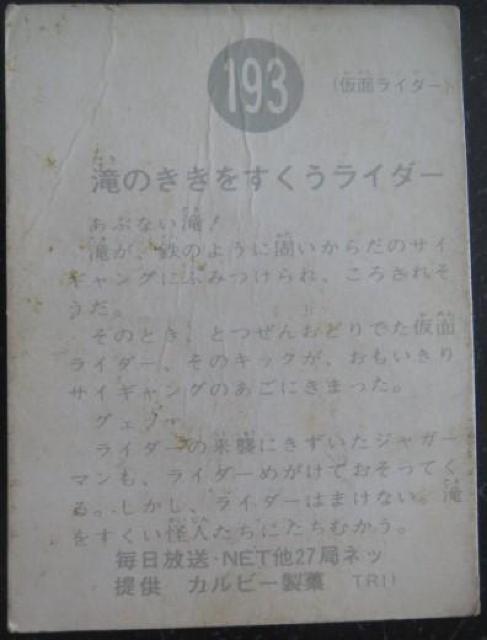 193
(仮面ライダー)
滝のききをすくうライダー
あぶない滝!
滝が、鉄のように固いからだのサイ
ギャングにふみつけられ、ころされそ
うだ。
そのとき、とつぜんおどりでた仮面
ライダー、そのキックが、おもいきり
サイギャングのあごにきまった。
グェッー
ライダーの来襲にきずいたジャガー
マンも、ライダーめがけておそってく
る。しかし、ライダーはまけない。滝
をすくい怪人たちにたちむかう。
毎日放送・NET他27局ネッ
提供 カルビー製菓 TR11